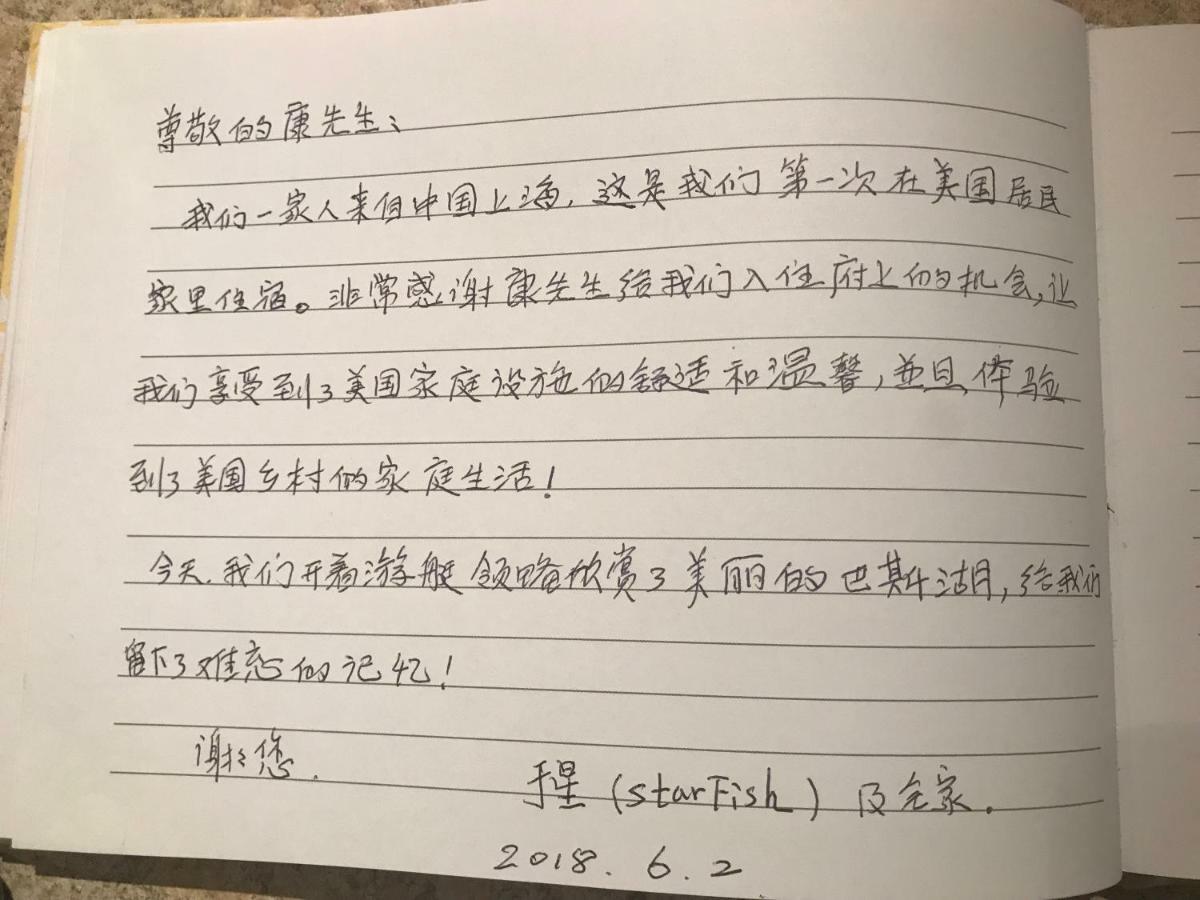 尊敬的康先生:
我们一家人来自中国上海,这是我们第一次在美国居民
家里住宿。非常感谢康先生给我们入住府上的机会,让
我们享受到了美国家庭设施的舒适和温馨,并且,体验
到了美国乡村的家庭生活!
今天,我们开着游艇领略欣赏了美丽的巴斯湖,给我们
留下了难忘的记忆!
谢谢您.
星(starFish)及全家.
2018.6.2